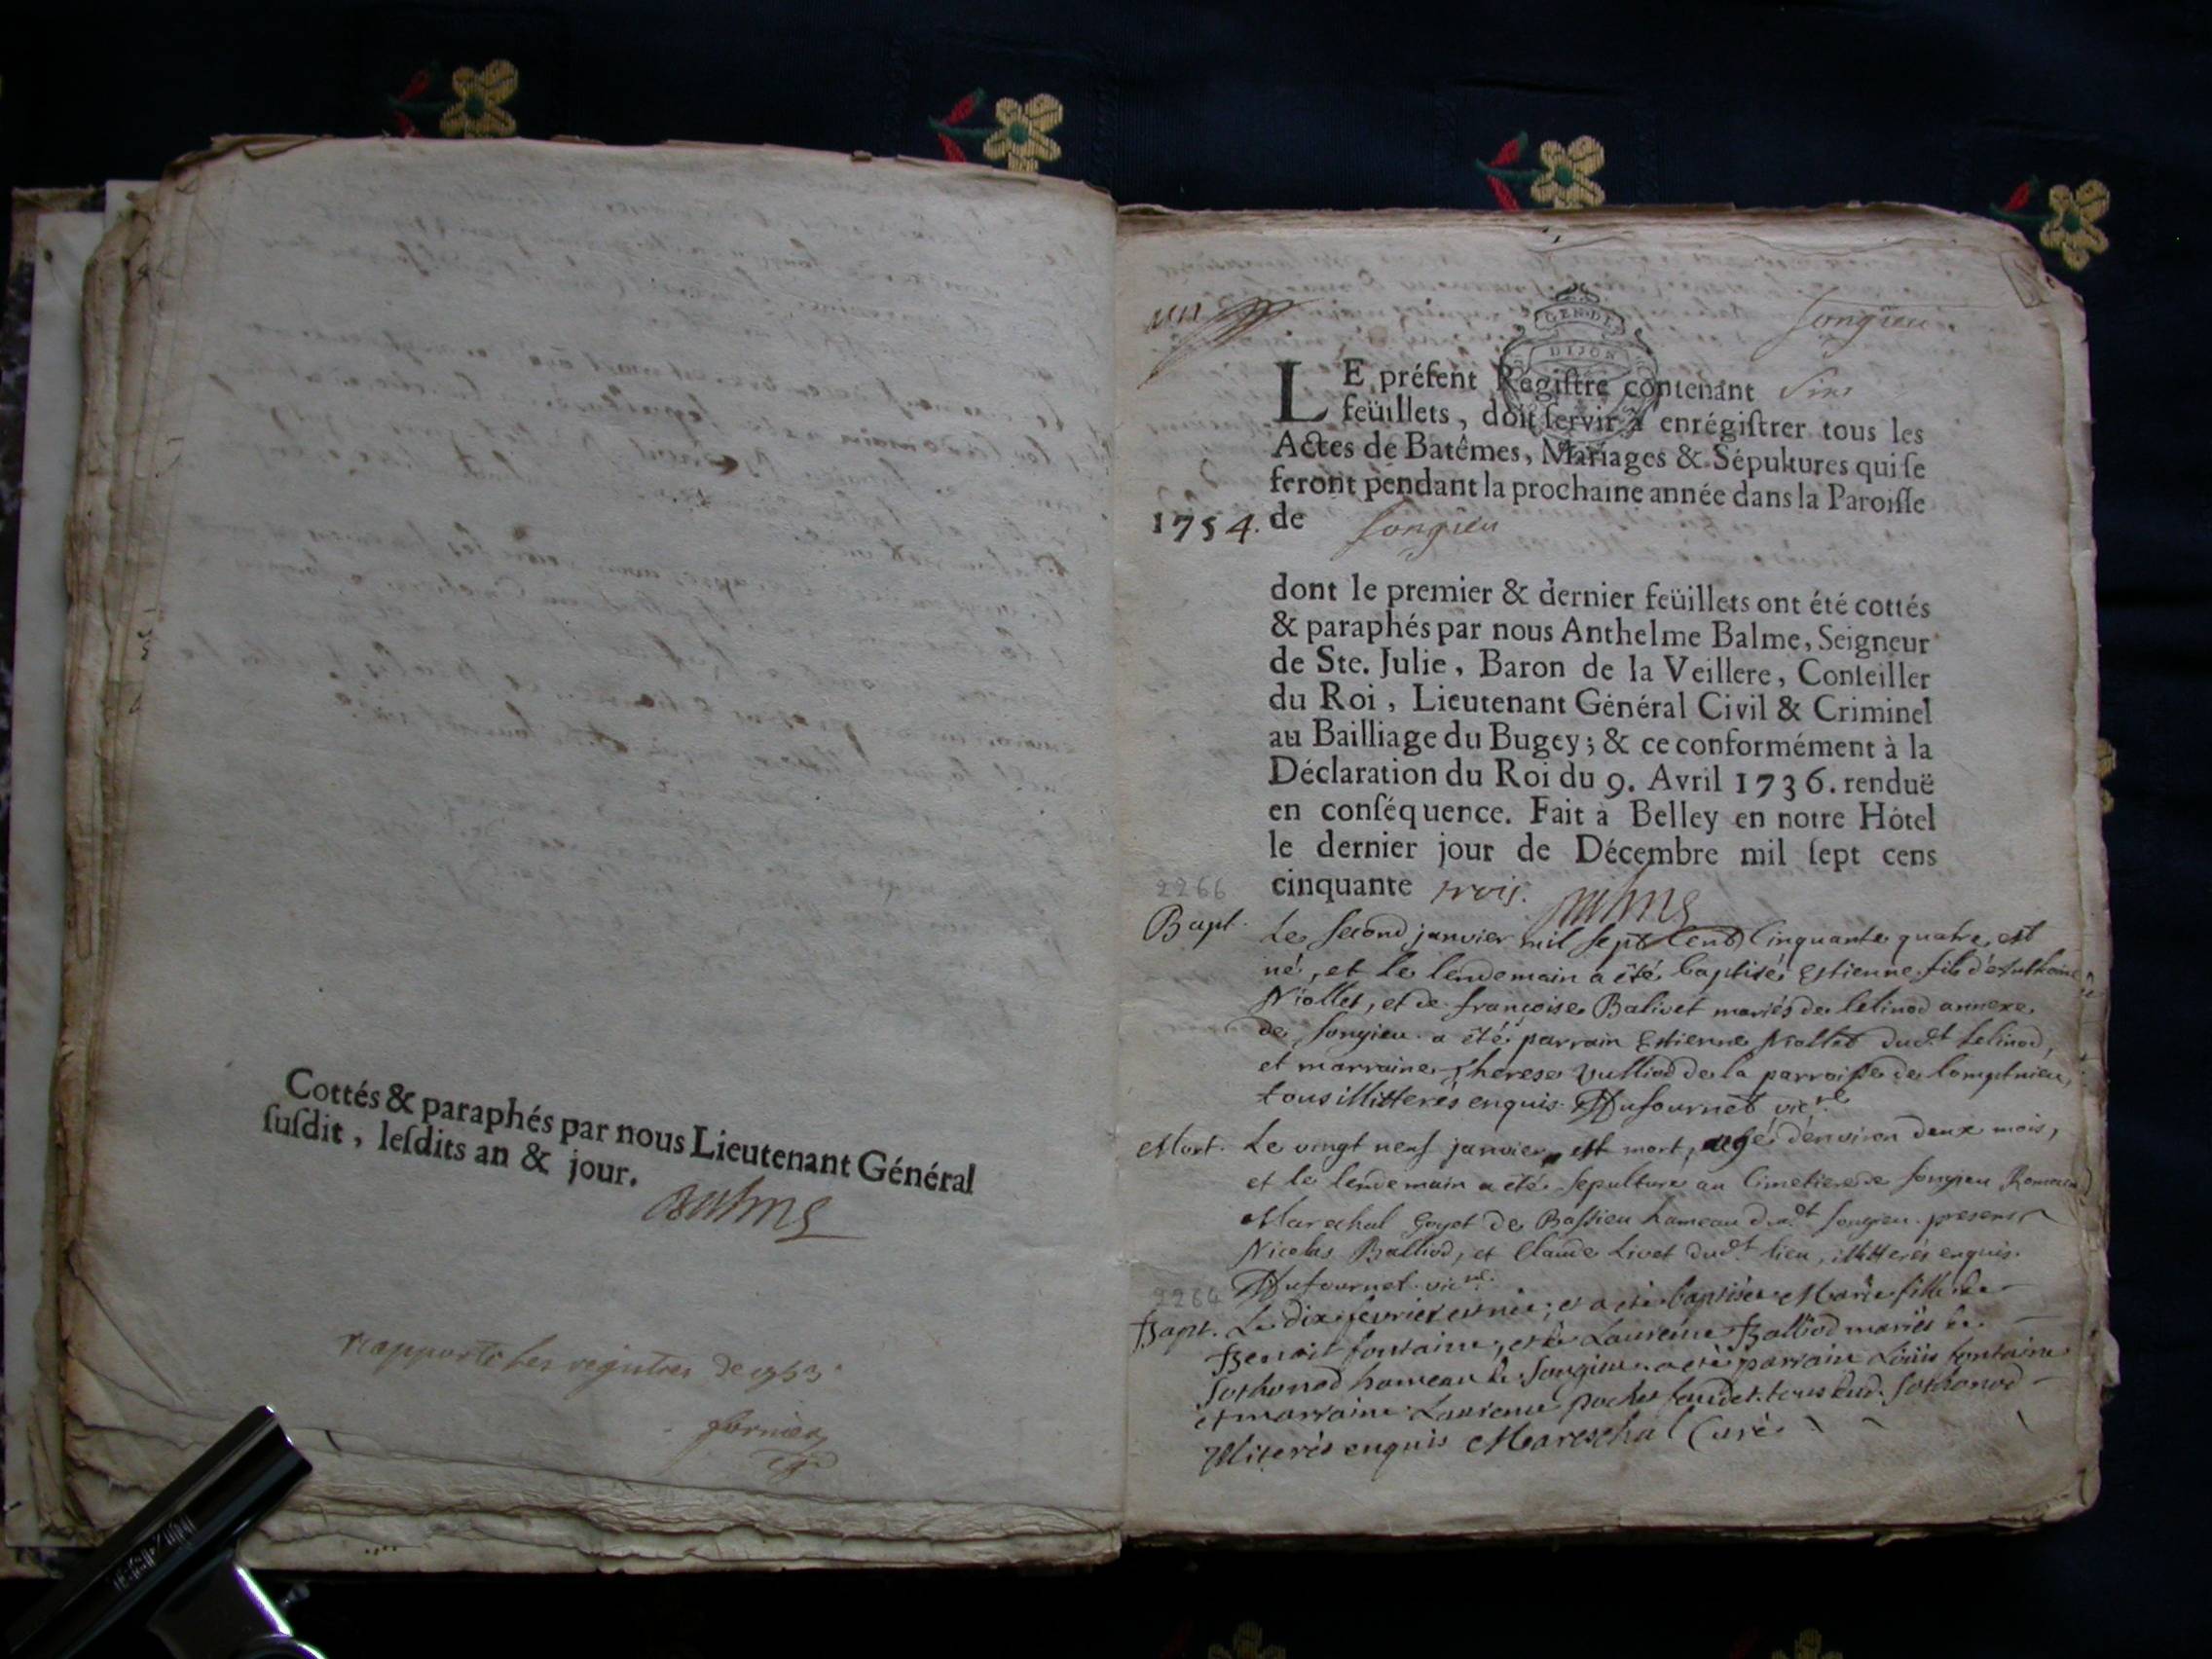 Cottés & paraphés par nous Lieutenant Général
ſuſdit, leſdits an & jour.
Balme
rapporté les registres de 1753
un
Songieu
GEN. DE
DIJON
LE préſent Regiſtre contenant
feüillets, doit ſervir à enrégiſtrer tous les
Actes de Batêmes, Mariages & Sépultures qui ſe
feront pendant la prochaine année dans la Paroiſſe
1754. de Songieu
dont le premier & dernier feüillets ont été cottés
& paraphés par nous Anthelme Balme, Seigneur
de Ste. Julie, Baron de la Veillere, Conſeiller
du Roi, Lieutenant Général Civil & Criminel
au Bailliage du Bugey; & ce conformément à la
Déclaration du Roi du 9. Avril 1736. renduë
en conſéquence. Fait à Belley en notre Hôtel
le dernier jour de Décembre mil ſept cens
cinquante trois.
2266
Balme
Bapt. Le second janvier mil sept cent cinquante quatre est
né, et le lendemain a été baptisé Estienne fils d'Anthoine
Niollet, et de françoise Balivet mariés de lelinod annexe
de songieu. a été parrain Estienne Niollet dud.t lelinod,
et marraine Therese Vulliod de la parroisse de lompnieu,
tous illitterés enquis. Dufournet vic.re
Mort. Le vingt neuf janvier est mort, agé d'environ deux mois,
et le lendemain a été sepulturé au Cimetiere de songieu Romain
Marechal Goyet de Bassieu hameau dud.t songieu. presens
Nicolas Balliod, et Claude Livet dud.t lieu, illitterés enquis.
Dufournet vic.re
2264
Bapt. Le dix fevrier est née, et a eté baptisée Marie fille de
Benoit fontaine, et de Laurence Balliod mariés de
Sothonod hameau de Songieu. a eté parrain Loüis fontaine
et marraine Laurence tous dud. Sothonod
Illiterés enquis Mareschal Curé